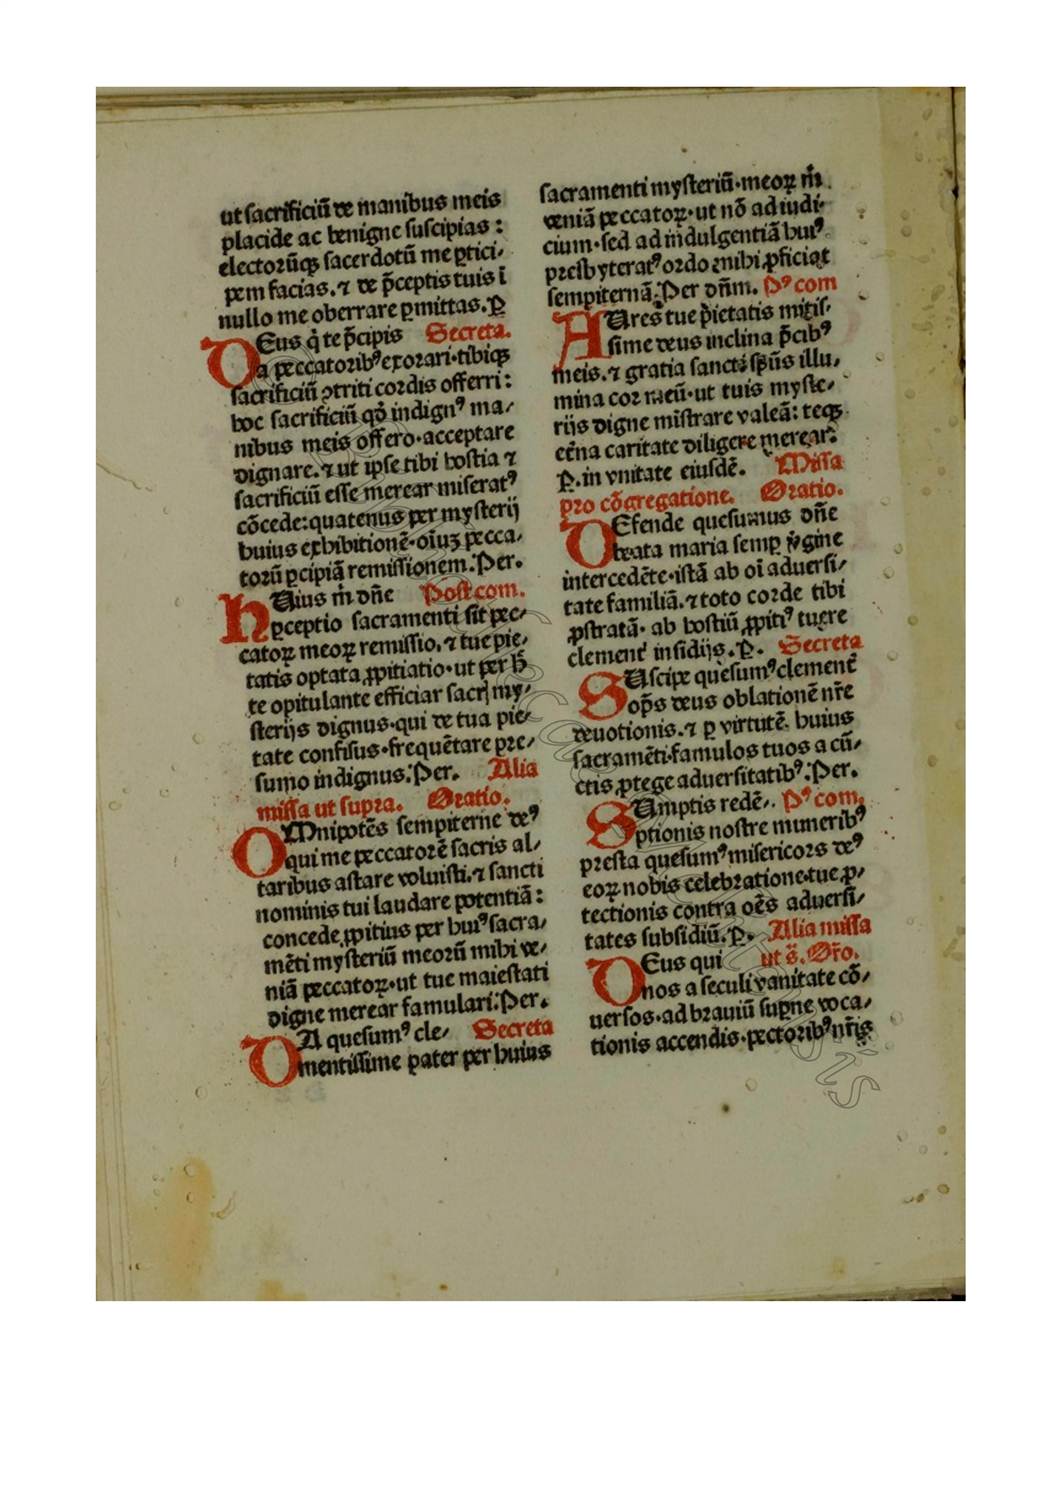 ut sacrificiū de manibus meis
placide ac benigne suscipias :
electorūqꝫ sacerdotū me ꝑtici⸗
pem facias. ⁊ de p̄ceptis tuis ī
nullo me oberrare ꝑmittas. P̲
DEus q̇ te p̄cipis Secreta.
a peccatoribꝰ exorari·tibiqꝫ
sacrificiū ꝯtriti cordis offerri :
hoc sacrificiū qḋ indignꝰ ma⸗
nibus meis offero·acceptare
dignare. ⁊ ut ipse tibi hostia ⁊
sacrificiū esse merear miseratꝰ
cōcede:quatenus per mysterij
huius exhibitionē·oīuꝫ pecca⸗
torū ꝑcipiā remissionem. Per.
hUius m̄ dn̄e Post com.
ꝑceptio sacramenti sit pec⸗
catoꝝ meoꝝ remissio. ⁊ tue pie⸗
tatis optata ꝓpitiatio·ut per h̄
te opitulante efficiar sacrꝭ my⸗
sterijs dignus·qui de tua pie⸗
tate confisus·frequētare pre⸗
sumo indignus. Per. Alia
missa ut supra. Oratio.
OMnipotēs sempiterne deꝰ
qui me peccatorē sacris al⸗
taribus astare voluisti. ⁊ sancti
nominis tui laudare potentiā :
concede ꝓpitius per huiꝰ sacra⸗
mēti mysteriū meorū mihi ve⸗
niā peccatoꝝ·ut tue maiestati
digne merear famulari. Per.
DA quesumꝰ cle⸗ Secreta
mentissime pater per huius
sacramenti mysteriū·meoꝝ m̄
veniā peccatoꝝ·ut nō ad iudi⸗
cium·sed ad indulgentiā huiꝰ
presbyteratꝰ ordo mihi ꝓficiat
sempiternā. Per dn̄m. Pꝰ com
AUres tue pietatis mitis⸗
sime deus inclina p̄cibꝰ
meis. ⁊ gratia sancti sp̄ūs illu⸗
mina cor meū·ut tuis myste⸗
rijs digne mīstrare valeā: teqꝫ
et̄na caritate diligere merear.
P̲. in vnitate eiusdē. Missa
pro cōgregatione. Oratio.
DEfende quesumus dn̄e
beata maria semꝑ v̇gine
intercedēte·istā ab oī aduersi⸗
tate familiā. ⁊ toto corde tibi
ꝓstratā· ab hostiū ꝓpitiꝰ tuere
clement̄ insidijs. P̲. Secreta
SUscipe quesumꝰ clement̄
op̄s deus oblationē nr̄e
deuotionis. ⁊ ꝑ virtutē huius
sacramēti·famulos tuos a cū⸗
ctis ꝓtege aduersitatibꝰ. Per.
SUmptis redē⸗ Pꝰ com.
ptionis nostre muneribꝰ
presta quesumꝰ misericors deꝰ
eoꝝ nobis celebratione·tue ꝓ⸗
tectionis contra oēs aduersi⸗
tates subsidiū. P̲. Alia missa
DEus qui ut s̄. Or̄o.
nos a seculi vanitate cō⸗
uersos·ad brauiū suꝑne voca⸗
tionis accendis·pectoribꝰ nr̄is